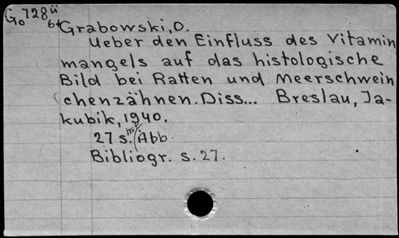 Go 728ü
64
Grabowski, O.
Ueber den Einfluss des Vitamin
mangels auf das histologische
Bild bei Ratten und Meerschwein
chenzähnen. Diss... Breslau, Ja-
kubik, 1940.
27 s. m/ Abb.
Bibliogr. s. 27.